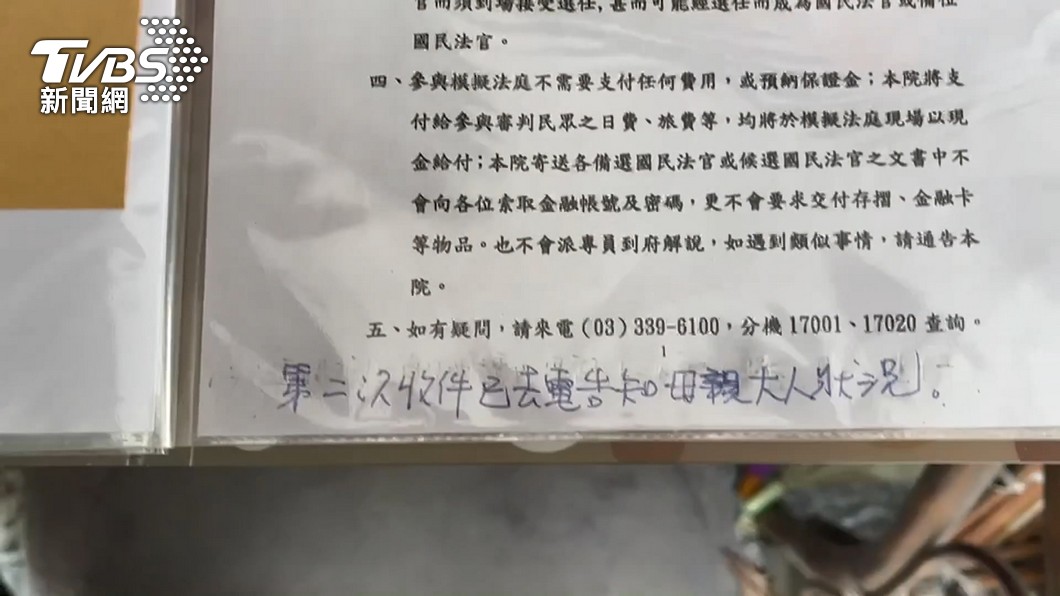 TVBS
新聞網
官而須到場接受選任,甚而可能經選任而成為國民法官或備位
國民法官。
四、參與模擬法庭不需要支付任何費用,或預納保證金;本院將支
付給參與審判民眾之日費、旅費等,均將於模擬法庭現場以現
金給付;本院寄送各備選國民法官或候選國民法官之文書中不
會向各位索取金融帳號及密碼,更不會要求交付存摺、金融卡
等物品。也不會派專員到府解說,如遇到類似事情,請通告本
院。
五、如有疑問,請來電(03)339-6100,分機17001、17020 查詢。
1
第二次收件已去電告知母親大人狀況」。